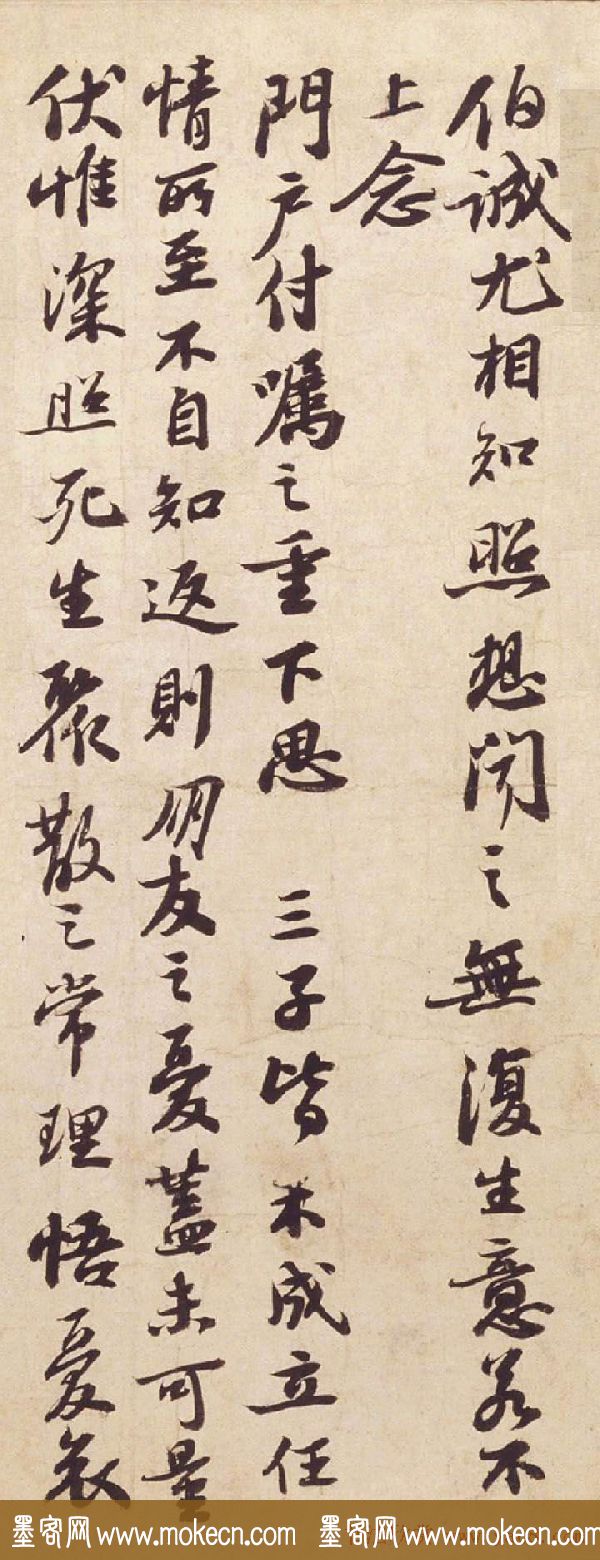 伯誠尤相知照想聞之無復生意若不
上念
門户付囑之重下思 三子皆未成立任
情所至不自知返則朋友之憂蓋未可量
伏惟深照死生聚散之常理悟憂哀
墨客网 www.mokecn.com 墨客网 www.mokecn.com